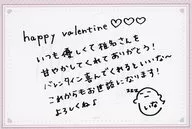 happy valentine♡♡♡
いつも優しくて椎名さんを
甘やかしてくれてありがとう!
バレンタイン喜んでくれるといいな〜
これからもお世話になります!
よろしくねっ♪
zzz
しいな